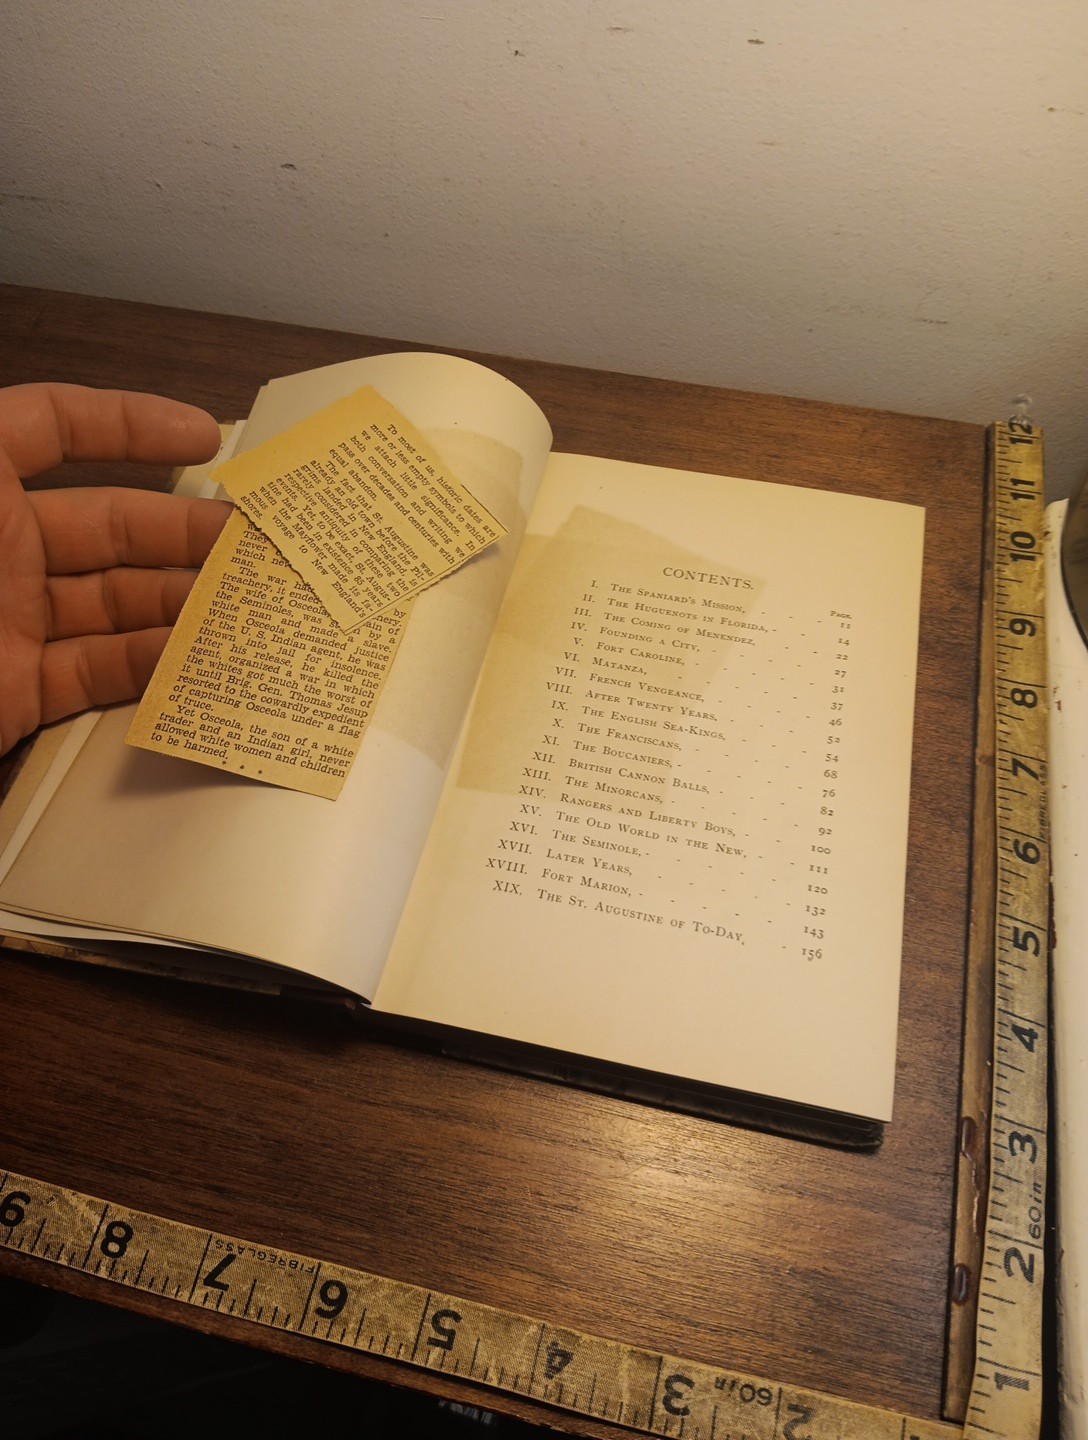 To most of us, historic dates are
more or less empty symbols to which
we attach little significance. In
both conversation and writing we
pass over decades and centuries with
equal abandon.
The fact that St. Augustine was
already an old town before the Pil-
grims landed in New England, is
rarely considered in comparing the
respective antiquity of these two
events. Yet, to be exact, St. Augus-
tine had been in existence 85 years
when the Mayflower made its fa-
mous voyage to New England's
shores.
They
never
which nev
man.
The war had
treachery, it ended by
The wife of Osceola,
the Seminoles, was by a
white man and made a slave.
When Osceola demanded justice
of the U. S. Indian agent, he was
thrown into jail for insolence.
After his release, he killed the
agent, organized a war in which
the whites got much the worst of
it until Brig. Gen. Thomas Jesup
resorted to the cowardly expedient
of capturing Osceola under a flag
of truce.
Yet Osceola, the son of a white
trader and an Indian girl, never
allowed white women and children
to be harmed.
* * *
CONTENTS.
PAGE.
I. THE SPANIARD'S MISSION, - - 11
II. THE HUGUENOTS IN FLORIDA, - - - 14
III. THE COMING OF MENENDEZ, - - 22
IV. FOUNDING A CITY, - - - 27
V. FORT CAROLINE, - - - 31
VI. MATANZA, - - - - 37
VII. FRENCH VENGEANCE, - - - 46
VIII. AFTER TWENTY YEARS, - - - 52
IX. THE ENGLISH SEA-KINGS, - - - 54
X. THE FRANCISCANS, - - - 68
XI. THE BOUCANIERS, - - - - 76
XII. BRITISH CANNON BALLS, - - - 82
XIII. THE MINORCANS, - - - - 92
XIV. RANGERS AND LIBERTY BOYS, - - - 100
XV. THE OLD WORLD IN THE NEW, - - - 111
XVI. THE SEMINOLE, - - - - 120
XVII. LATER YEARS, - - - - 132
XVIII. FORT MARION, - - - - - 143
XIX. THE ST. AUGUSTINE OF TO-DAY, - 156
12
11
10
9
8
7
FIBREGLASS
6
5
4
3
60 in
2
1
9
8
FIBREGLASS
7
6
5
4
3
60 in
2